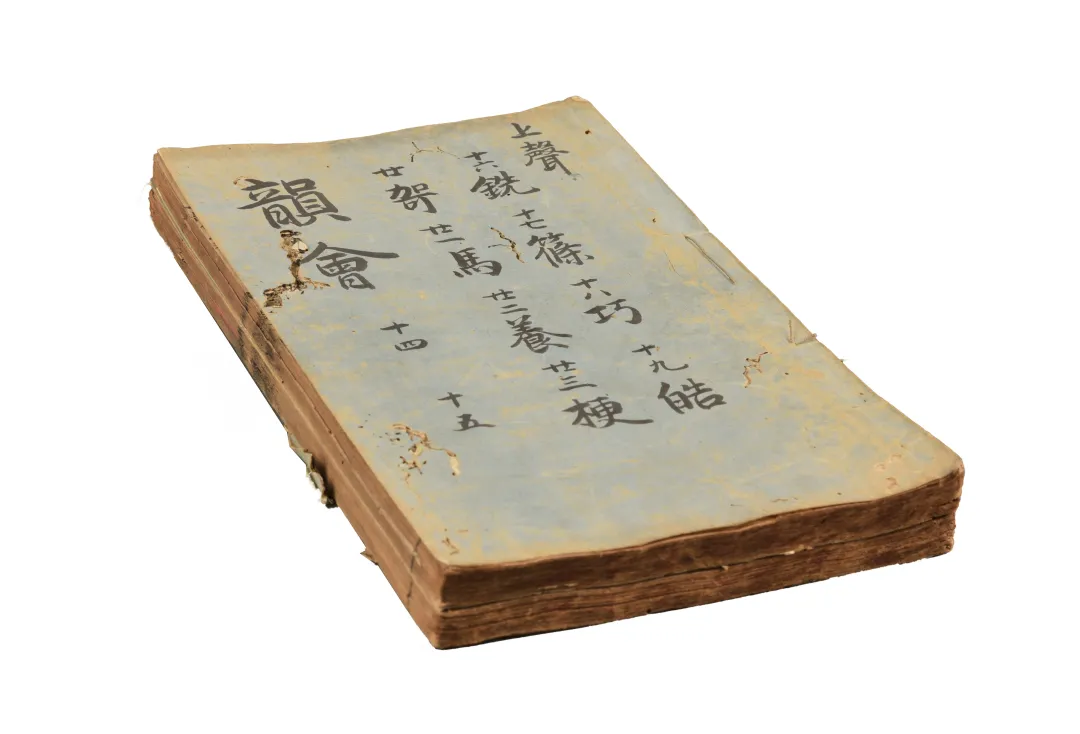 上聲
十六銑十七篠十八巧十九皓
廿哿廿一馬廿二養廿三梗
韻會
十四 十五